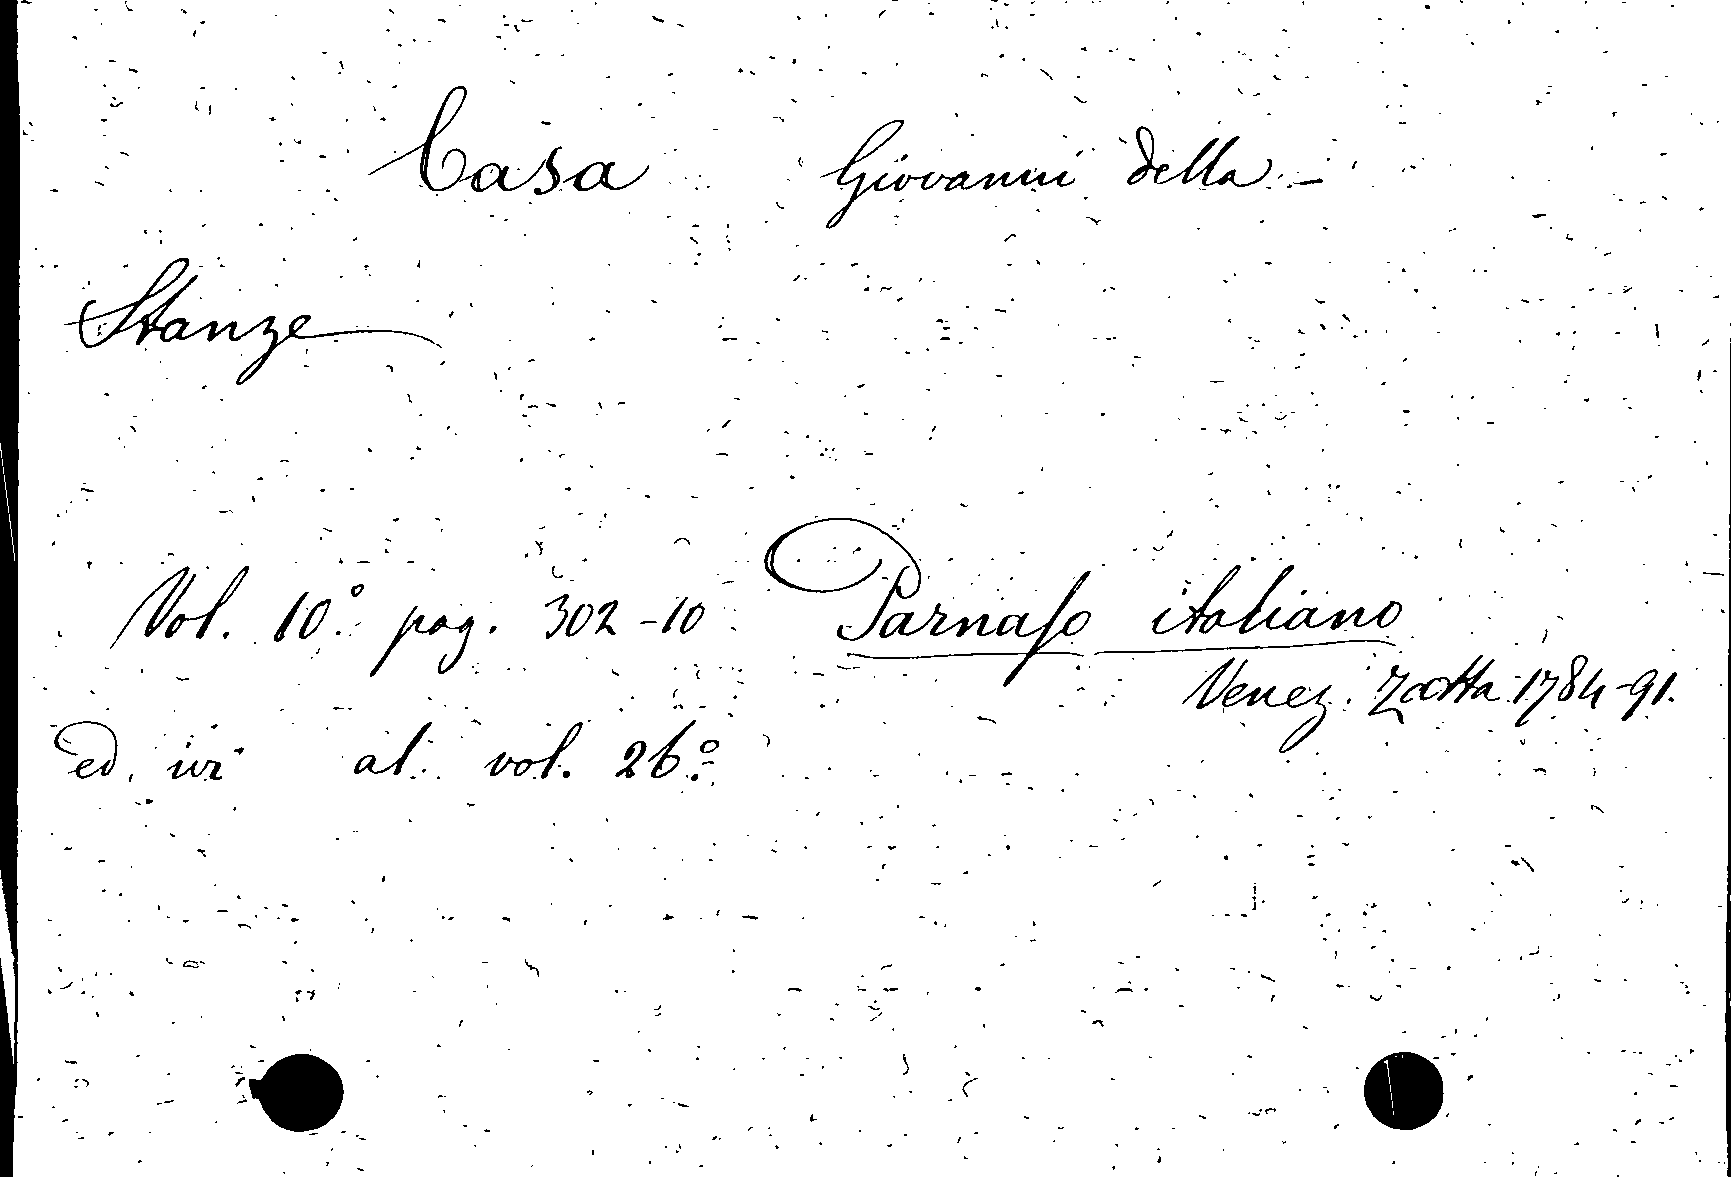 Casa Giovanni della -
Stanze
Vol. 10.° pag. 302-10 Parnaſo italiano
Venez. Zatta 1784-91.
ed. ivi al vol. 26.°